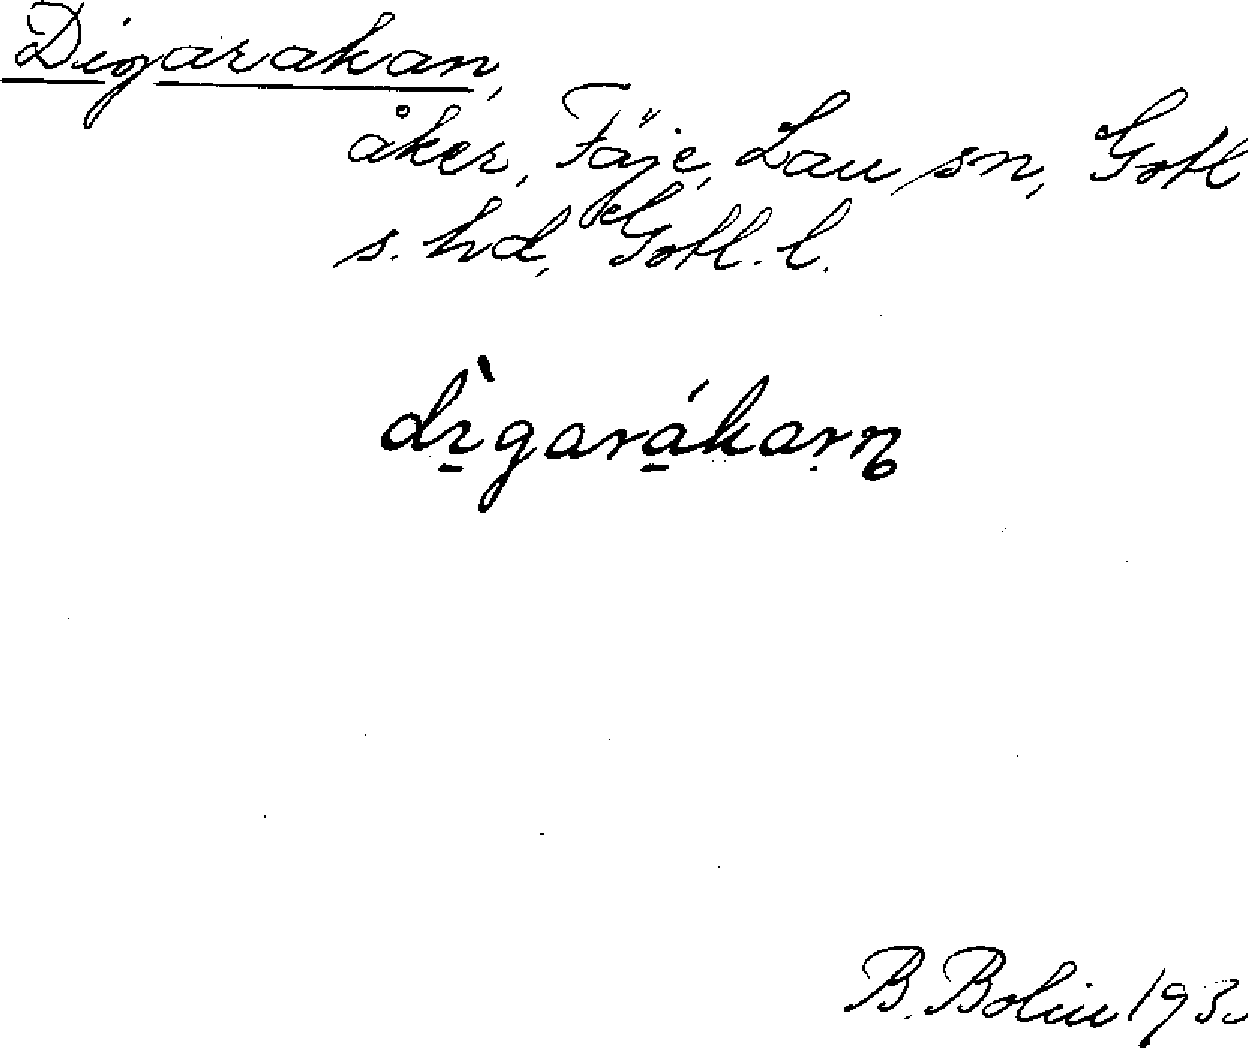 Digarakan,
åker, Fäje, Lau sn, Gotl
s. hd, Gotl. l.
dı̱̀gará̱kaṛn
B. Bolin 193